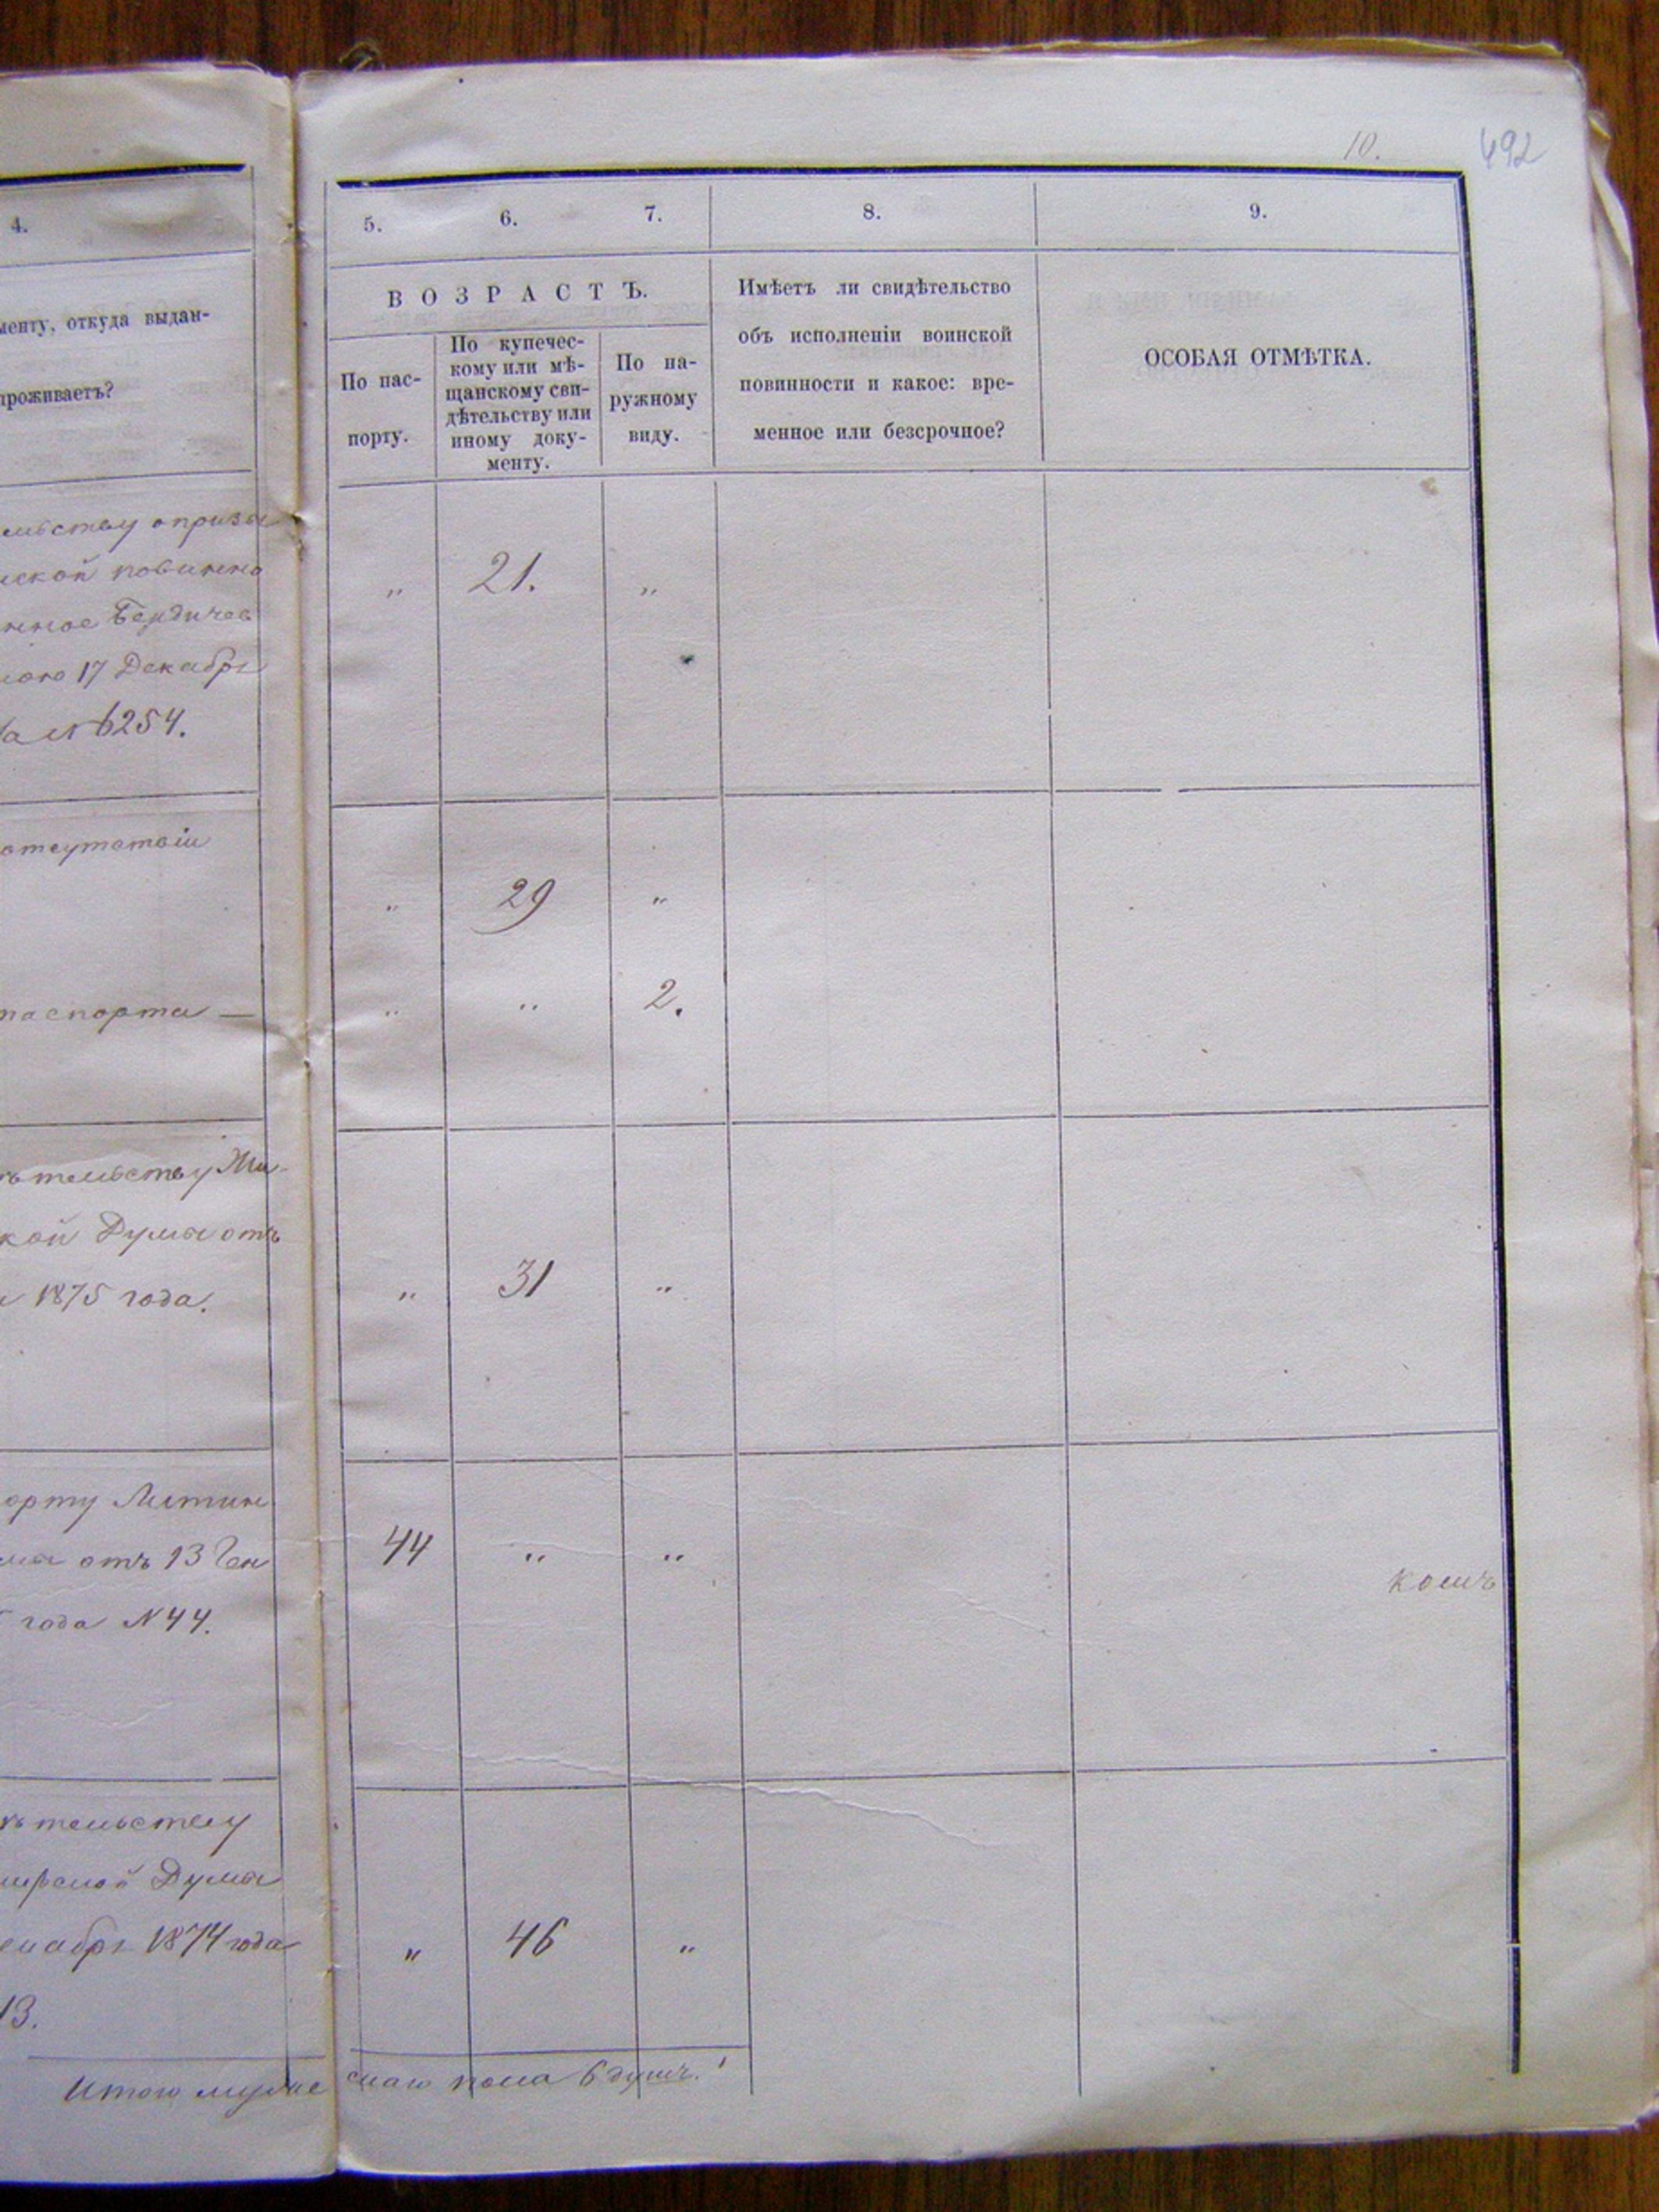 10. 492
4.
менту, откуда выдан-
проживаетъ?
5. 6. 7. 8. 9.
ВОЗРАСТЪ.
По пас-
портy.
По купечес-
кому или мѣ-
щанскому сви-
дѣтельству или
иному доку-
менту.
По на-
ружному
виду.
Имѣетъ ли свидѣтельство
объ исполненіи воинской
повинности и какое: вре-
менное или безсрочное?
ОСОБАЯ ОТМѢТКА.
ельству о призы
ской повинно
нное Бердичев
17 Декабря
6254.
„ 21. „
отсутствіи
„ 29 „
паспорта —
„ „ 2.
ѣтельству Жи-
кой Думы отъ
1875 года.
„ 31 „
орту Летич
отъ 13 Ген
года N 44.
44 „ „
ѣтельству
Думы
екабря 1874 года
13.
„ 46 „
Итого мужескаго пола 6 душъ.